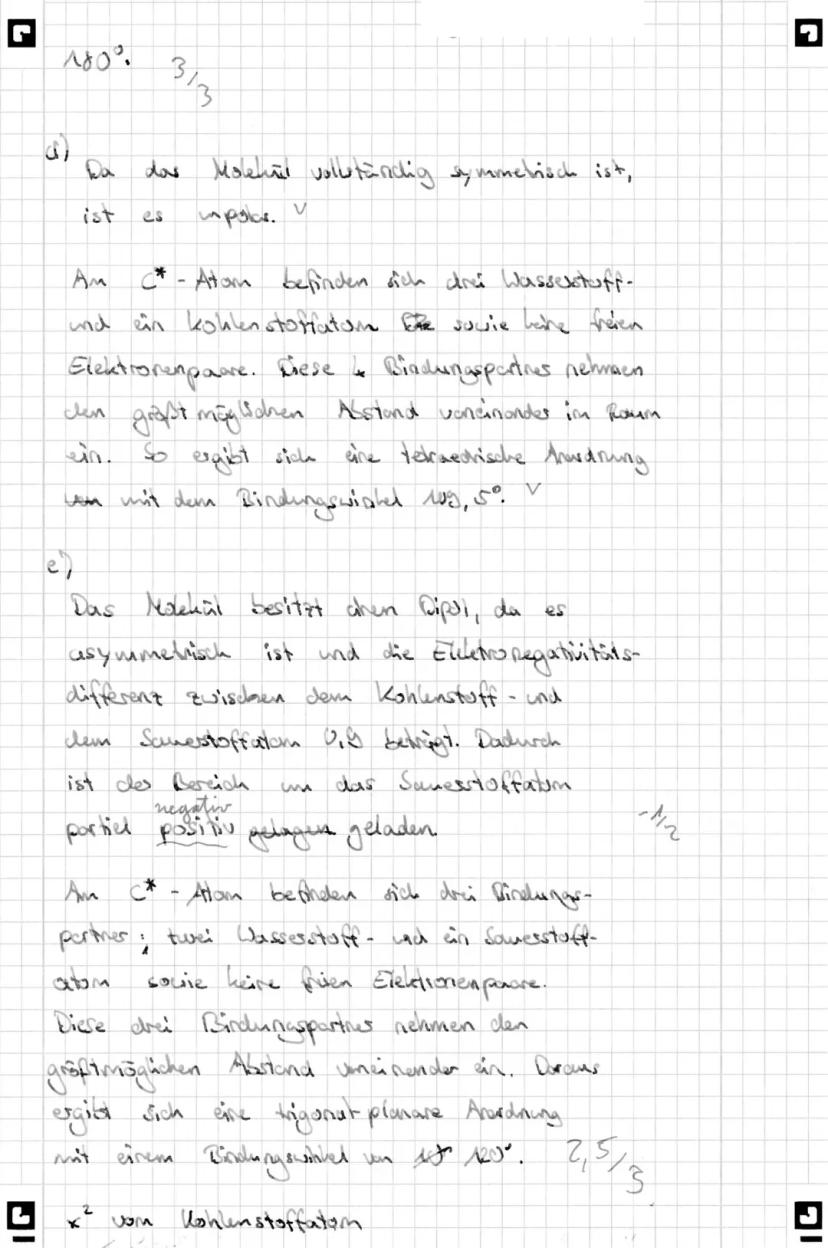 180°. 3/3
d)
Da das Molekül vollständig symmetrisch ist,
ist es unpolar. V
Am C* - Atom befinden sich drei Wasserstoff-
und ein Kohlenstoffatom sowie keine freien
Elektronenpaare. Diese 4 Bindungspartner nehmen
den größtmöglichen Abstand voneinander im Raum
ein. So ergibt sich eine tetraedrische Anordnung
von mit dem Bindungswinkel 109,5°. V
e)
Das Molekül besitzt einen Dipol, da es
asymmetrisch ist und die Elektronegativitäts-
differenz zwischen dem Kohlenstoff- und
dem Sauerstoffatom 0,9 beträgt. Dadurch
ist der Bereich um das Sauerstoffatom
negativ
partiel positiv gelagen geladen. -1/2
Am C* - Atom befinden sich drei Bindungs-
partner; zwei Wasserstoff- und ein Sauerstoff-
atom sowie keine freien Elektronenpaare.
Diese drei Bindungspartner nehmen den
größtmöglichen Abstand voneinander ein. Daraus
ergibt sich eine trigonal planare Anordnung
mit einem Bindungswinkel von 120°. 2,5/3
x² vom Kohlenstoffatom